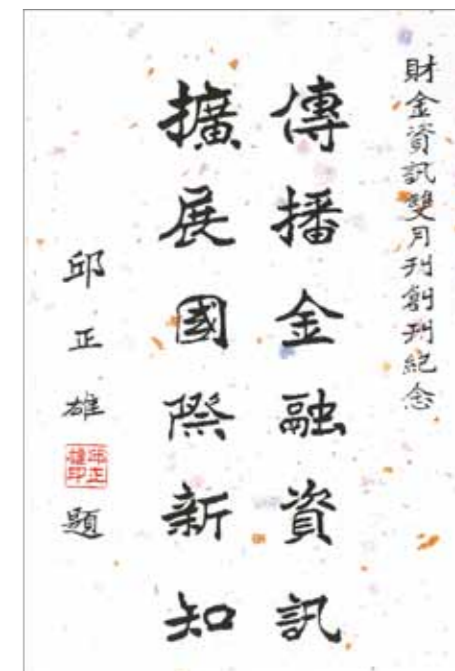 財金資訊雙月刊創刊紀念
傳播金融資訊
擴展國際新知
邱正雄題
邱正雄印